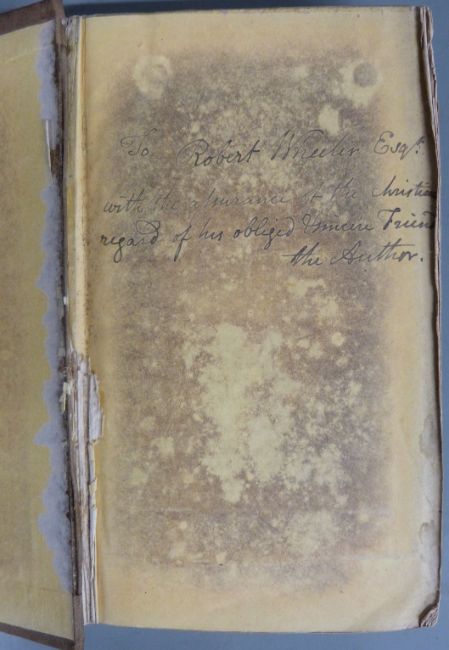 To Robert Wheeler Esqr.
with the assurance of the christian
regard of his obliged & sincere Friend
the Author.